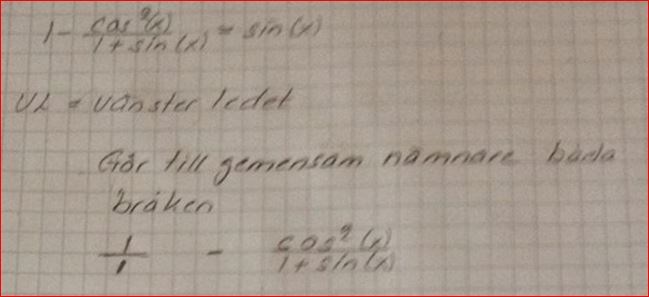 1 - cos²(x) / 1 + sin(x) = sin(x)
VL = vänster ledet
Gör till gemensam nämnare båda
bråken
1/1 - cos²(x) / 1 + sin(x)